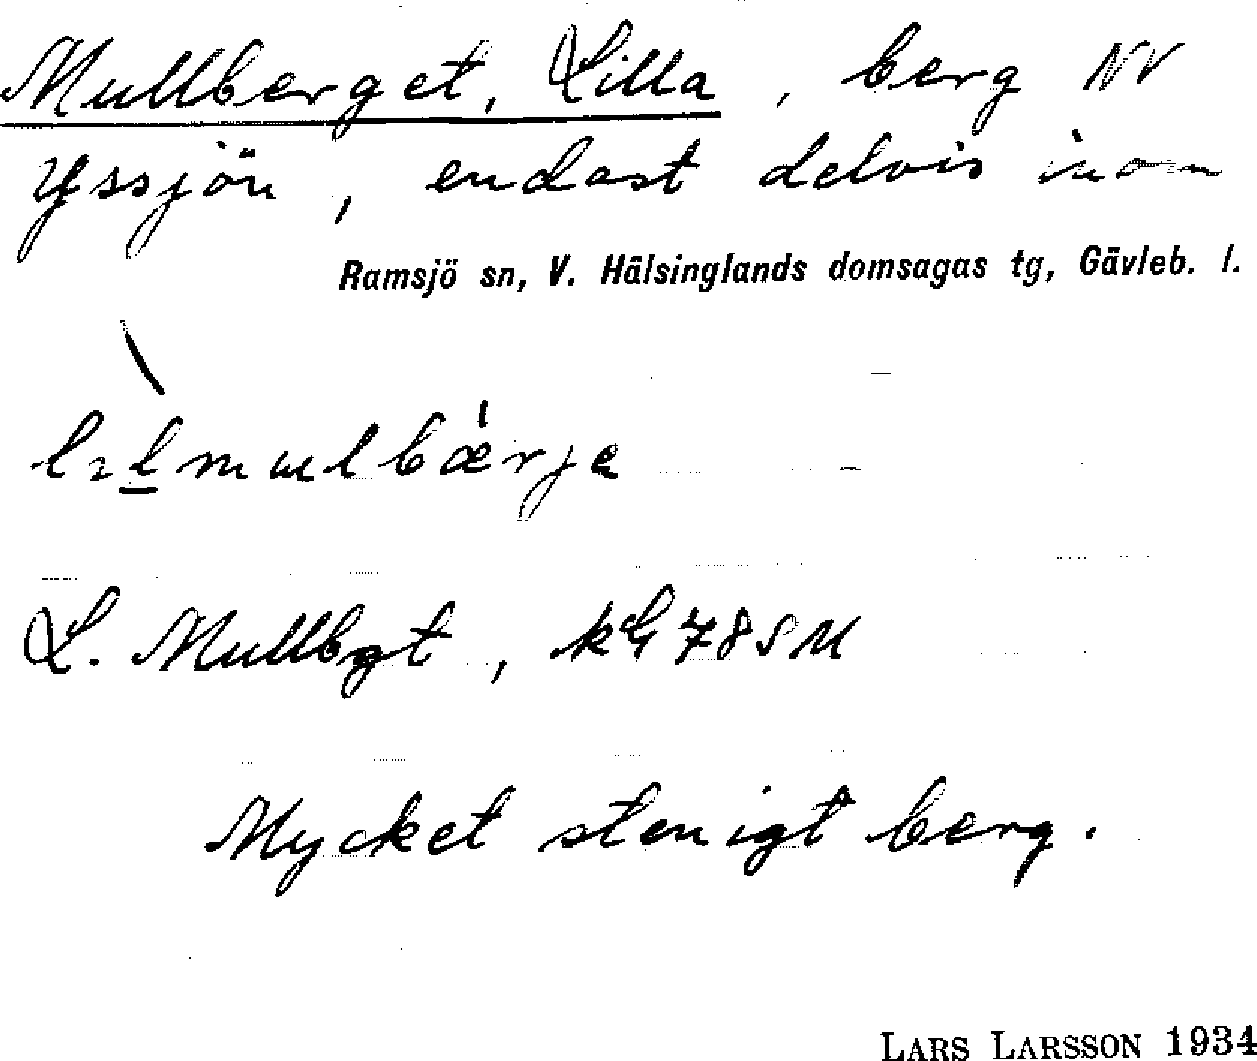 Mullberget, Lilla, berg NV
Yssjön, endast delvis inom
Ramsjö sn, V. Hälsinglands domsagas tg, Gävleb. l.
L. Mullbgt, kG 78 SM
Mycket stenigt berg.
LARS LARSSON 1934